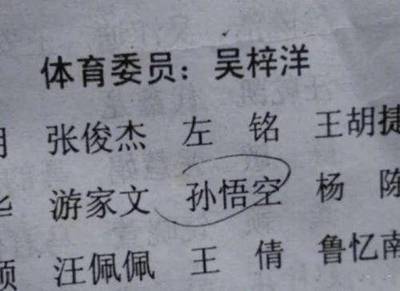 体育委员：吴梓洋
张俊杰 左 铭 王胡捷
游家文 孙悟空 杨 陈
汪佩佩 王 倩 鲁忆南